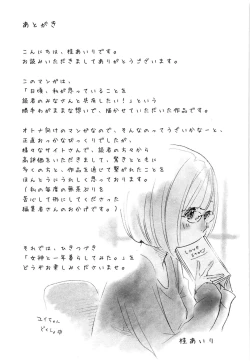 あとがき
こんにちは、桂あいりです。
お読みいただきましてありがとうございます。
このマンガは、
「日頃、私が思っていることを
読者のみなさんと共有したい！」という
勝手わがままな想いで、描かせていただいた作品です。
オトナ向けのマンガなので、そんなのってうざいかなーと、
正直おっかなびっくりでしたが、
様々なサイトさんで、読者の方々から
高評価をいただきまして、驚きとともに
多くの方と、作品を通じて繋がれたことを
ほんとうにうれしく思っております。
(私の毎度の無茶ぶりを
苦心して形にしてくださった
編集者さんのおかげです。)
それでは、ひきつづき
『女神と一年暮らしてみた。』を
どうぞお楽しみくださいませ。
LOVE
STORY
ユイちゃん
どくしょ中
桂あいり